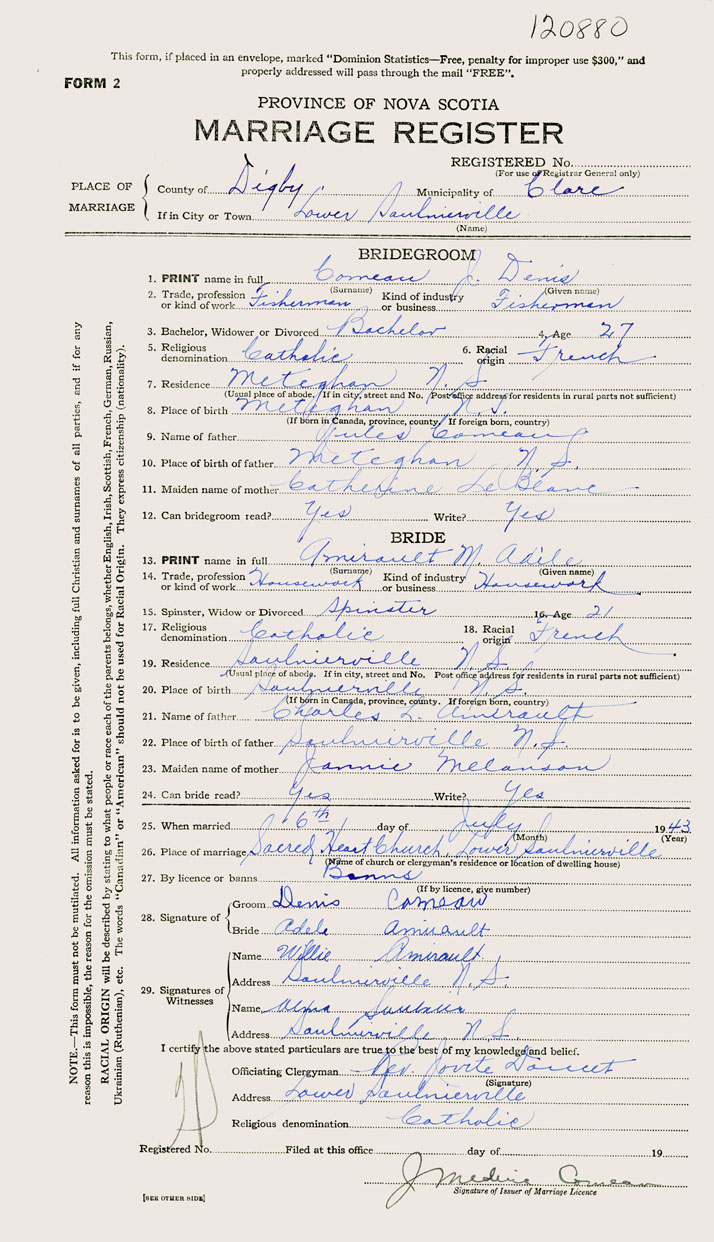 120880
This form, if placed in an envelope, marked "Dominion Statistics—Free, penalty for improper use $300," and
properly addressed will pass through the mail "FREE".
FORM 2
PROVINCE OF NOVA SCOTIA
MARRIAGE REGISTER
REGISTERED No.
(For use of Registrar General only)
PLACE OF MARRIAGE
County of Digby. Municipality of Clare
If in City or Town Lower Saulnierville
(Name)
BRIDEGROOM
1. PRINT name in full Comeau J. Denis
(Surname) (Given name)
2. Trade, profession or kind of work Fisherman Kind of industry or business Fisherman
3. Bachelor, Widower or Divorced Bachelor 4. Age 27
5. Religious denomination Catholic 6. Racial origin French
7. Residence Meteghan N. S.
(Usual place of abode. If in city, street and No. Post office address for residents in rural parts not sufficient)
8. Place of birth Meteghan N. S.
(If born in Canada, province, county. If foreign born, country)
9. Name of father Jules Comeau
10. Place of birth of father Meteghan N. S.
11. Maiden name of mother Catherine LeBlanc
12. Can bridegroom read? Yes Write? Yes
BRIDE
13. PRINT name in full Amirault M. Adèle
(Surname) (Given name)
14. Trade, profession or kind of work Housework Kind of industry or business Housework
15. Spinster, Widow or Divorced Spinster 16. Age 21
17. Religious denomination Catholic 18. Racial origin French
19. Residence Saulnierville N. S.
(Usual place of abode. If in city, street and No. Post office address for residents in rural parts not sufficient)
20. Place of birth Saulnierville N. S.
(If born in Canada, province, county. If foreign born, country)
21. Name of father Charles L. Amirault
22. Place of birth of father Saulnierville N. S.
23. Maiden name of mother Jannie Melanson
24. Can bride read? Yes Write? Yes
25. When married 6th day of July 1943
(Month) (Year)
26. Place of marriage Sacred Heart Church, Lower Saulnierville
(Name of church or clergyman's residence or location of dwelling house)
27. By licence or banns Banns
(If by licence, give number)
28. Signature of
Groom Denis Comeau
Bride Adele Amirault
29. Signatures of Witnesses
Name Willie Amirault
Address Saulnierville N. S.
Name
Address Saulnierville N. S.
I certify the above stated particulars are true to the best of my knowledge and belief.
Officiating Clergyman Rev. Jovite Doucet
(Signature)
Address Lower Saulnierville
Religious denomination Catholic
Registered No. Filed at this office day of 19
J Medric Comeau
Signature of Issuer of Marriage Licence
[SEE OTHER SIDE]
NOTE.—This form must not be mutilated. All information asked for is to be given, including full Christian and surnames of all parties, and if for any
reason this is impossible, the reason for the omission must be stated.
RACIAL ORIGIN will be described by stating to what people or race each of the parents belongs, whether English, Irish, Scottish, French, German, Russian,
Ukrainian (Ruthenian), etc. The words "Canadian" or "American" should not be used for Racial Origin. They express citizenship (nationality).